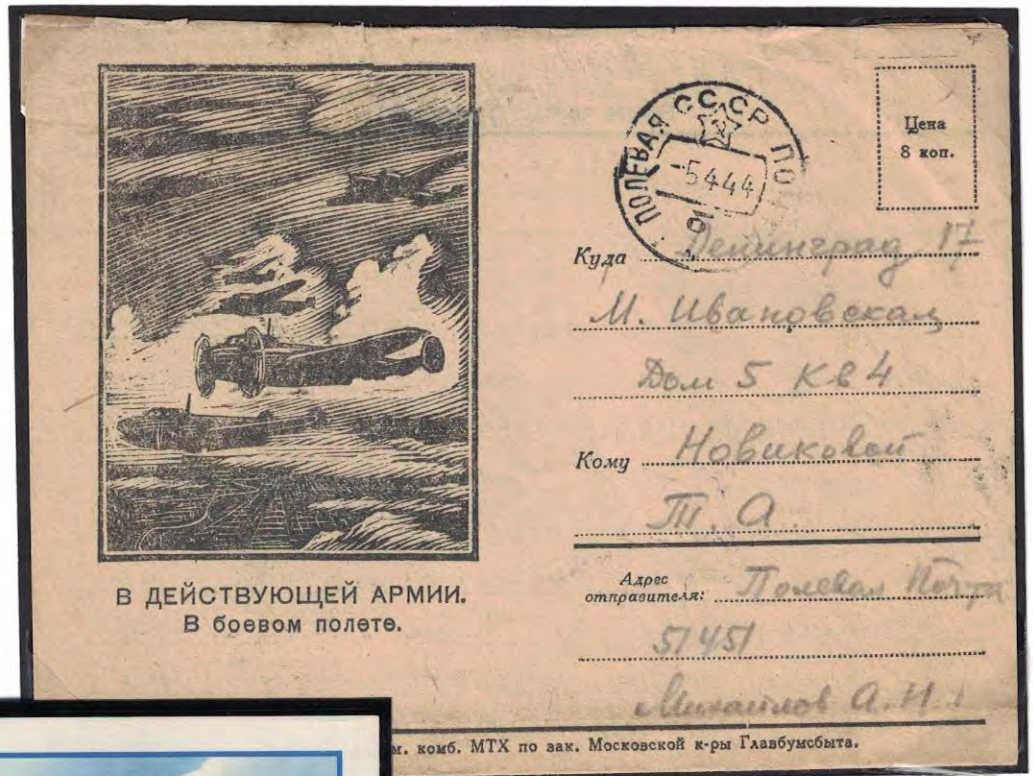 В ДЕЙСТВУЮЩЕЙ АРМИИ.
В боевом полете.
ПОЛЕВАЯ СССР ПО
-5 4 44
Цена
8 коп.
Куда Ленинград 17
М. Ивановская
Дом 5 Кв 4
Кому Новиковой
Т. А.
Адрес
отправителя: Полевая Почта
51451
Михайлов А. Н.
м. комб. МТХ по зак. Московской к-ры Главбумсбыта.